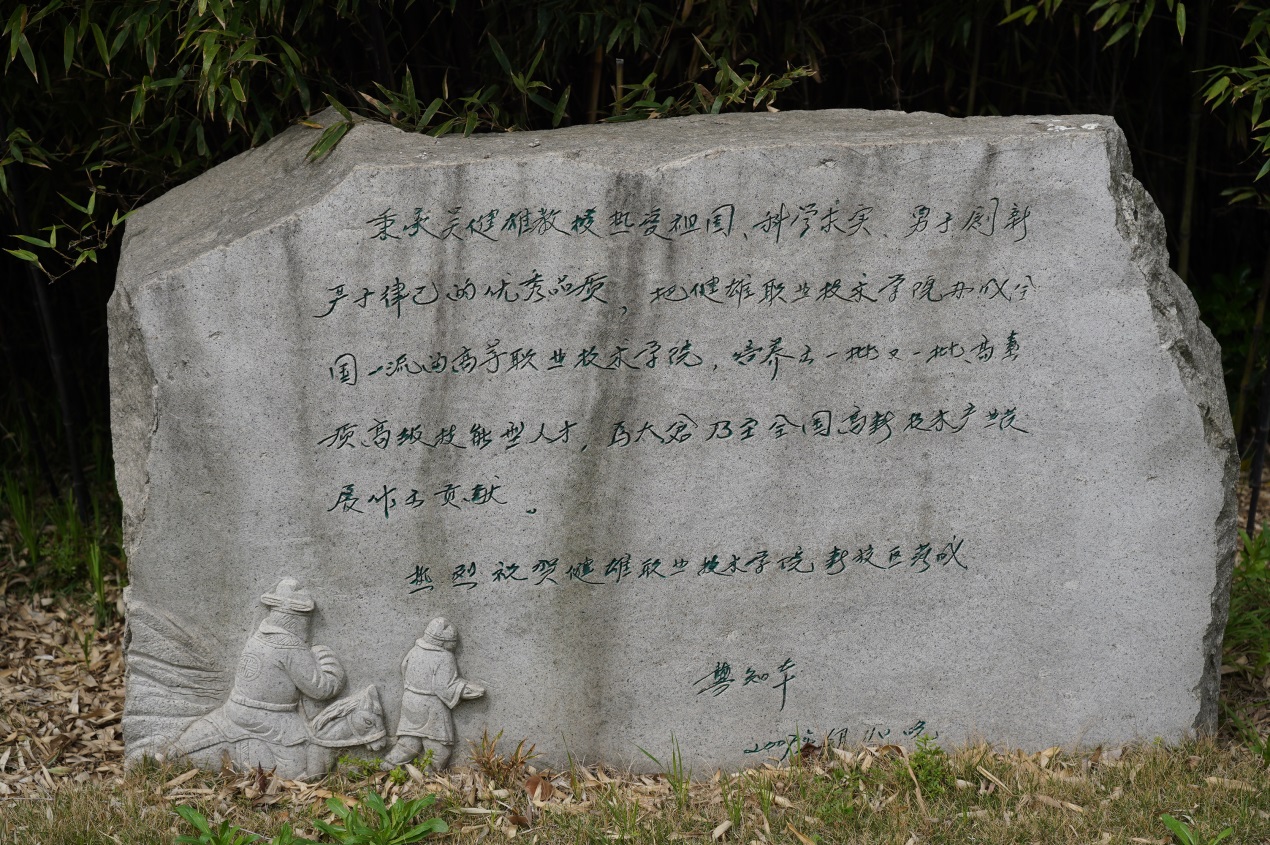 秉承吴健雄教授热爱祖国、科学求实、勇于创新
严于律己的优秀品质，把健雄职业技术学院办成全
国一流的高等职业技术学院，培养出一批又一批高素
质高级技能型人才，为太仓乃至全国高新技术产业发
展作出贡献。
热烈祝贺健雄职业技术学院新校区落成
知
2007年